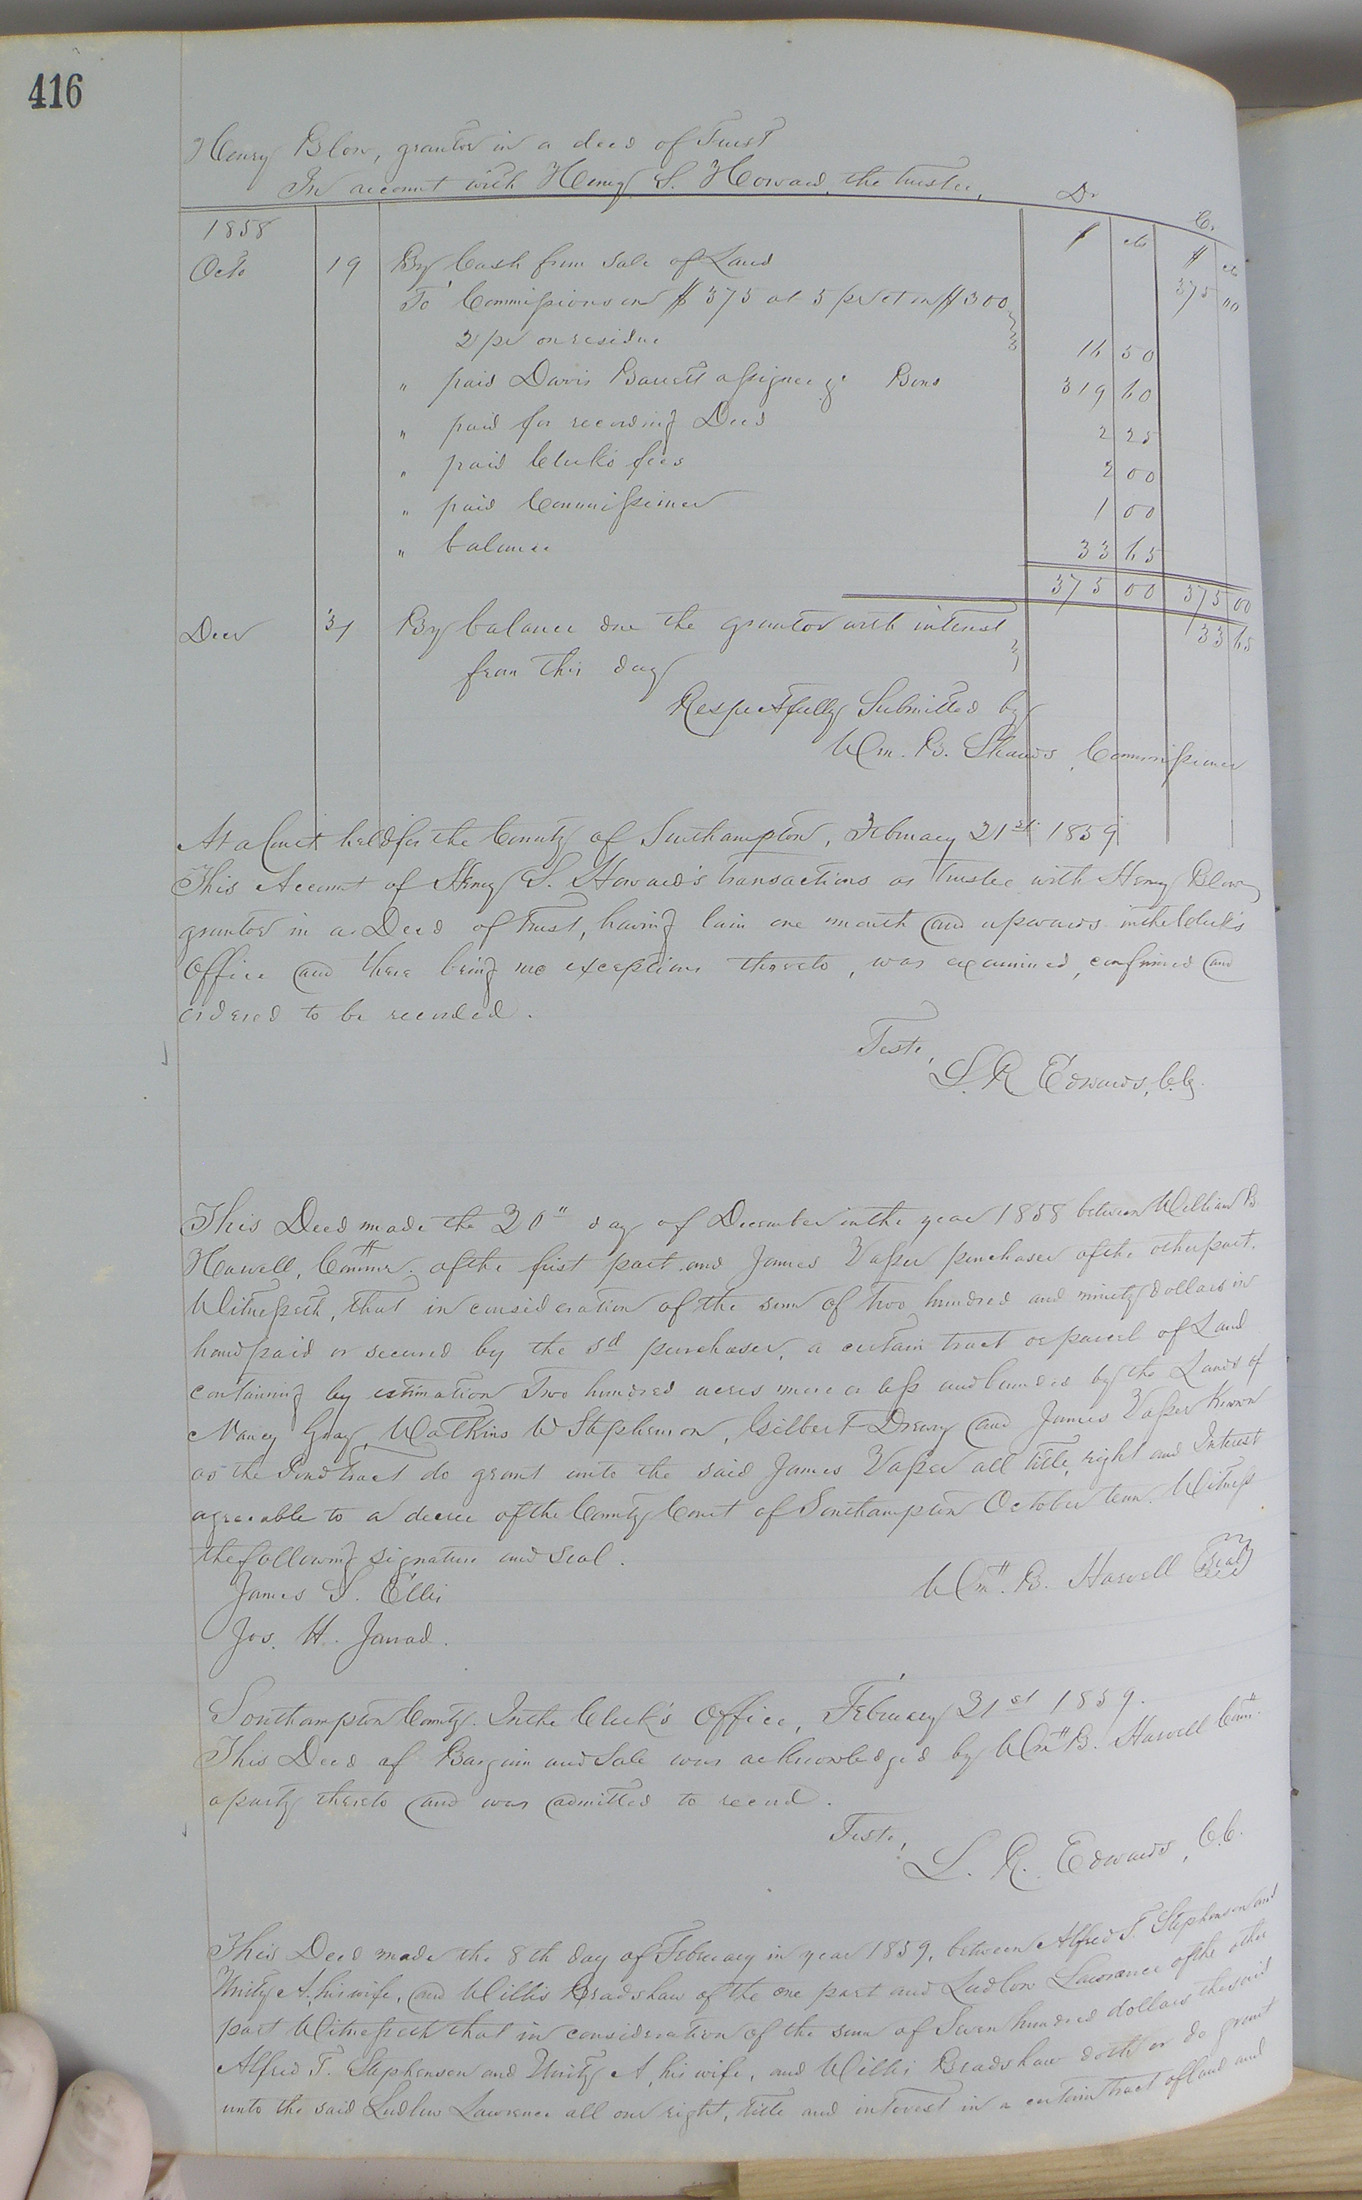 416
Henry Blow, grantor in a deed of Trust
In account with Henry S. Howard, the trustee, Dr. Cr.
1858 $ cts $ cts
Octo 19 By Cash from sale of Land 375 00
To Commissions on $375 at 5 pr ct on $300
2 pr on residue 16 50
" paid Davis Barrett assignee of Bond 319 60
" paid for recording Deed 2 25
" paid Clerk's fees 2 00
" paid Commissioner 1 00
" balance 33 65
375 00 375 00
Decr 31 By balance due the grantor with interest 33 65
from this day
Respectfully Submitted by
Wm. B. Shands, Commissioner
At a Court held for the County of Southampton, February 21st 1859
This Account of Henry S. Howard's transactions as Trustee with Henry Blow,
grantor in a Deed of Trust, having lain one month and upwards in the Clerk's
Office and there being no exceptions thereto, was examined, confirmed and
ordered to be recorded.
Teste,
L. R. Edwards, C.C.
This Deed made the 20" day of December in the year 1858 between William B
Harwell, Commr. of the first part and James Vasser purchaser of the other part.
Witnesseth, that in consideration of the sum of Two hundred and ninety dollars in
hand paid or secured by the sd purchaser, a certain tract or parcel of Land
containing by estimation Two hundred acres more or less and bounded by the Lands of
Nancy Gray, Watkins W Stephenson, Gilbert Drewry and James Vasser Known
as the Pond tract do grant unto the said James Vasser all title, right and Interest
agreeable to a decree of the County Court of Southampton October term. Witness
the following signature and seal.
James S. Ellis Wm. B. Harwell (Seal)
Jos. H. Jarrad.
Southampton County. In the Clerk's Office, February 21st 1859.
This Deed of Bargain and Sale was acknowledged by Wm B. Harwell Comr.
a party thereto and was admitted to record.
Teste,
L. R. Edwards, C.C.
This Deed made the 8th day of February in year 1859, between Alfred T. Stephenson and
Unity A. his wife, and Willis Bradshaw of the one part and Ludlow Lawrence of the other
part Witnesseth that in consideration of the sum of Seven hundred dollars, the said
Alfred T. Stephenson and Unity A, his wife, and Willis Bradshaw doth or do grant
unto the said Ludlow Lawrence all our right, title and interest in a certain tract of land and